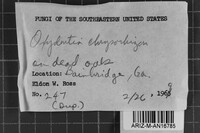 FUNGI OF THE SOUTHEASTERN UNITED STATES
Oxydontia chrysorhizon
on dead oak
Location: Bainbridge, Ga.
Eldon W. Ross
No. 247 2/26, 1968
(Dup.)
ARIZ-M-AN16785